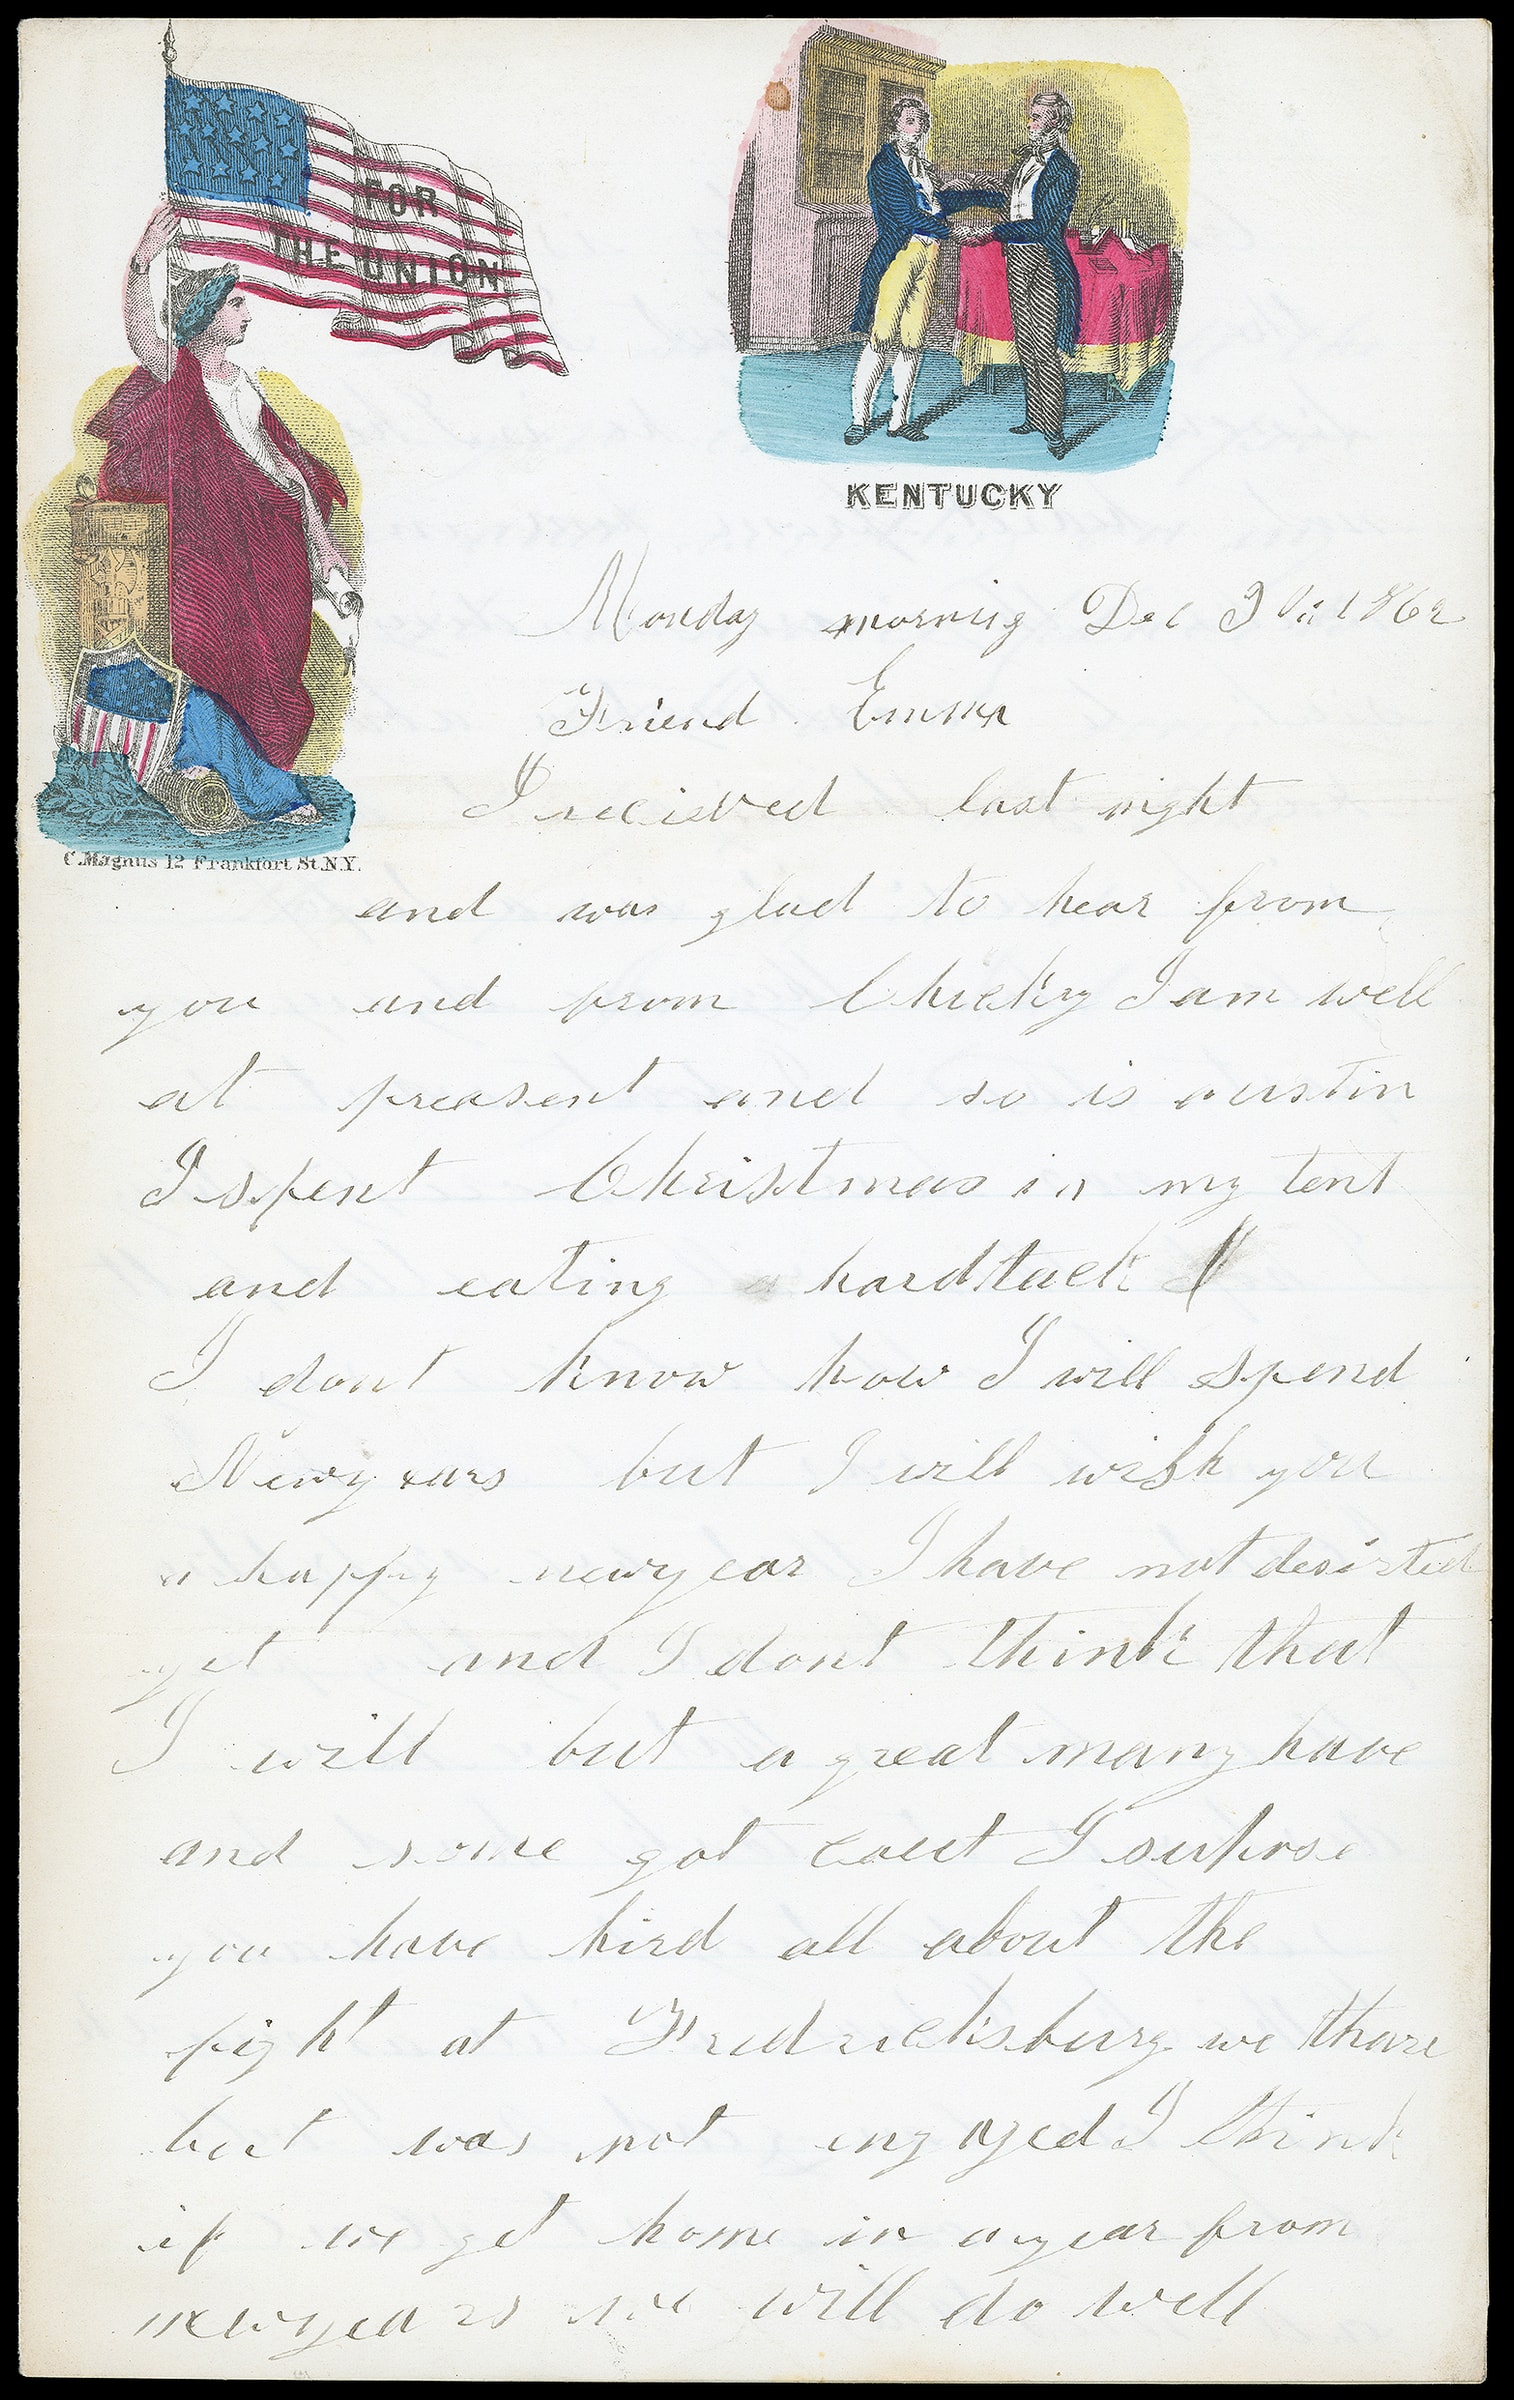 FOR
THE UNION
KENTUCKY
C. Magnus 12 Frankfort St. N.Y.
Monday morning Dec 1862
Friend Emma
I recieved last night
and was glad to hear from
you and from I am well
at preasent and so is austin
I spent Christmas in my tent
and eating hardtack
I dont know how I will spend
Newyears but I will wish you
a happy newyear I have not desirted
yet and I dont think that
I will but a great many have
and some got caut I supose
you have hird all about the
fight at Fredricksburg we thare
but was not ingaged I think
if we get home in a year from
newyears we will do well